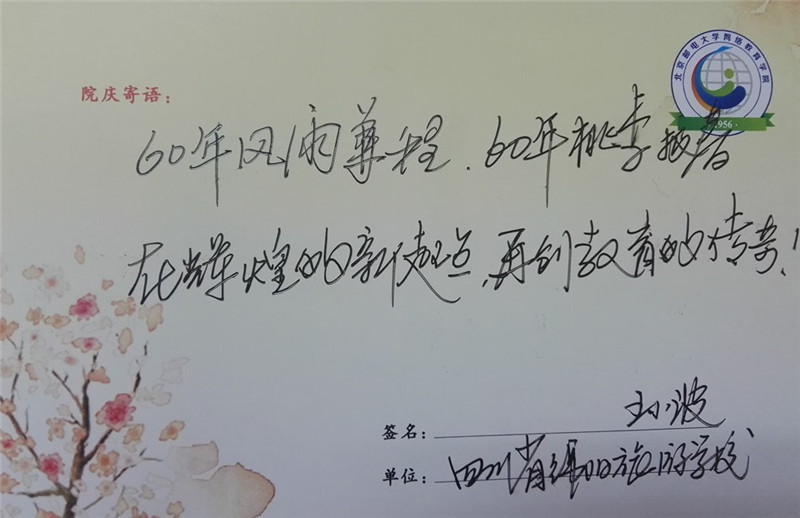 北京邮电大学网络教育学院
1956
院庆寄语：
60年风雨兼程、60年桃李报春
在辉煌的新起点,再创教育的传奇！
签名：王小波
单位：四川省绵阳旅游学校